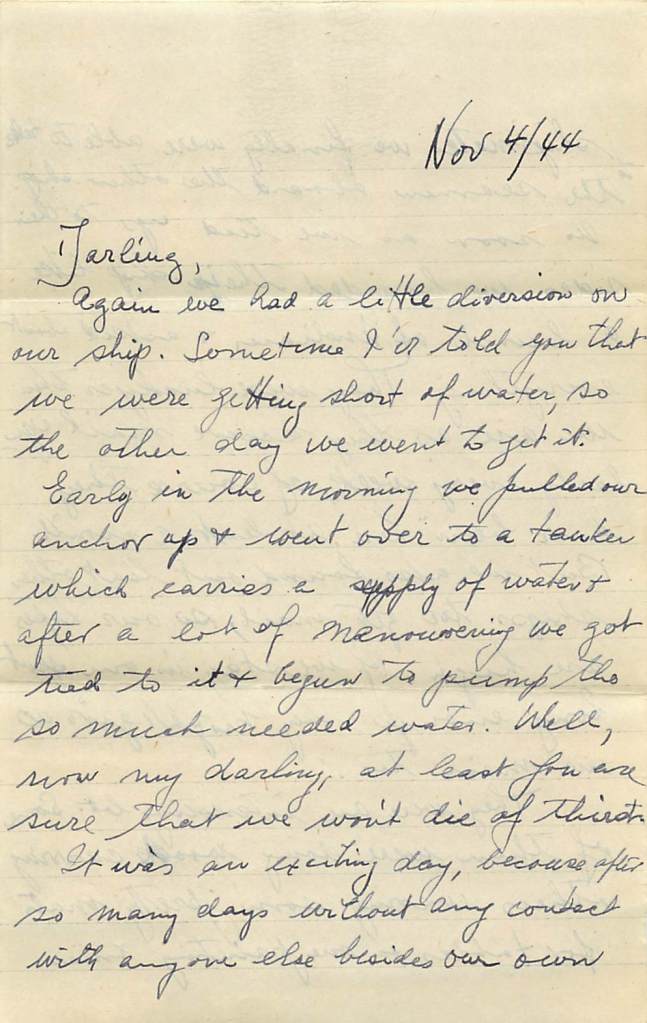 Nov 4/44
Darling,
Again we had a little diversion on
our ship. Sometime I'v told you that
we were getting short of water, so
the other day we went to get it.
Early in the morning we pulled our
anchor up & went over to a tanker
which carries a supply of water &
after a lot of manouvering we got
tied to it & begun to pump the
so much needed water. Well,
now my darling, at least you are
sure that we won't die of thirst.
It was an exciting day, because after
so many days without any contact
with anyone else besides our own